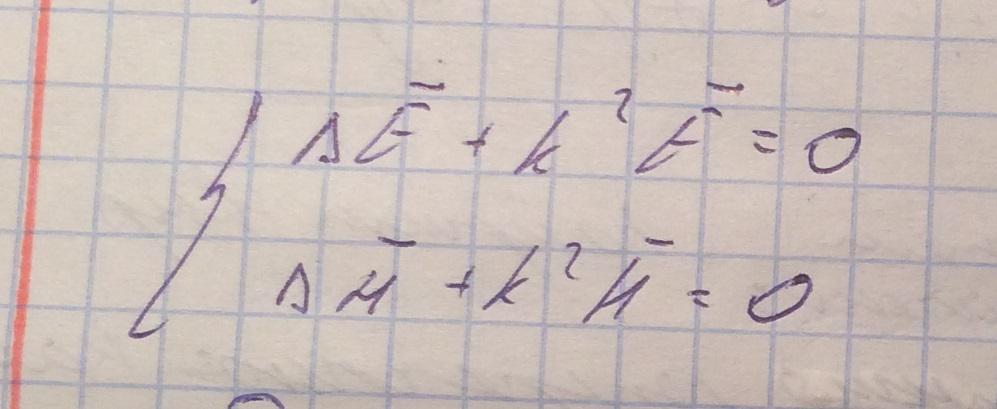 ΔE̅ + k² E̅ = 0
ΔH̅ + k² H̅ = 0